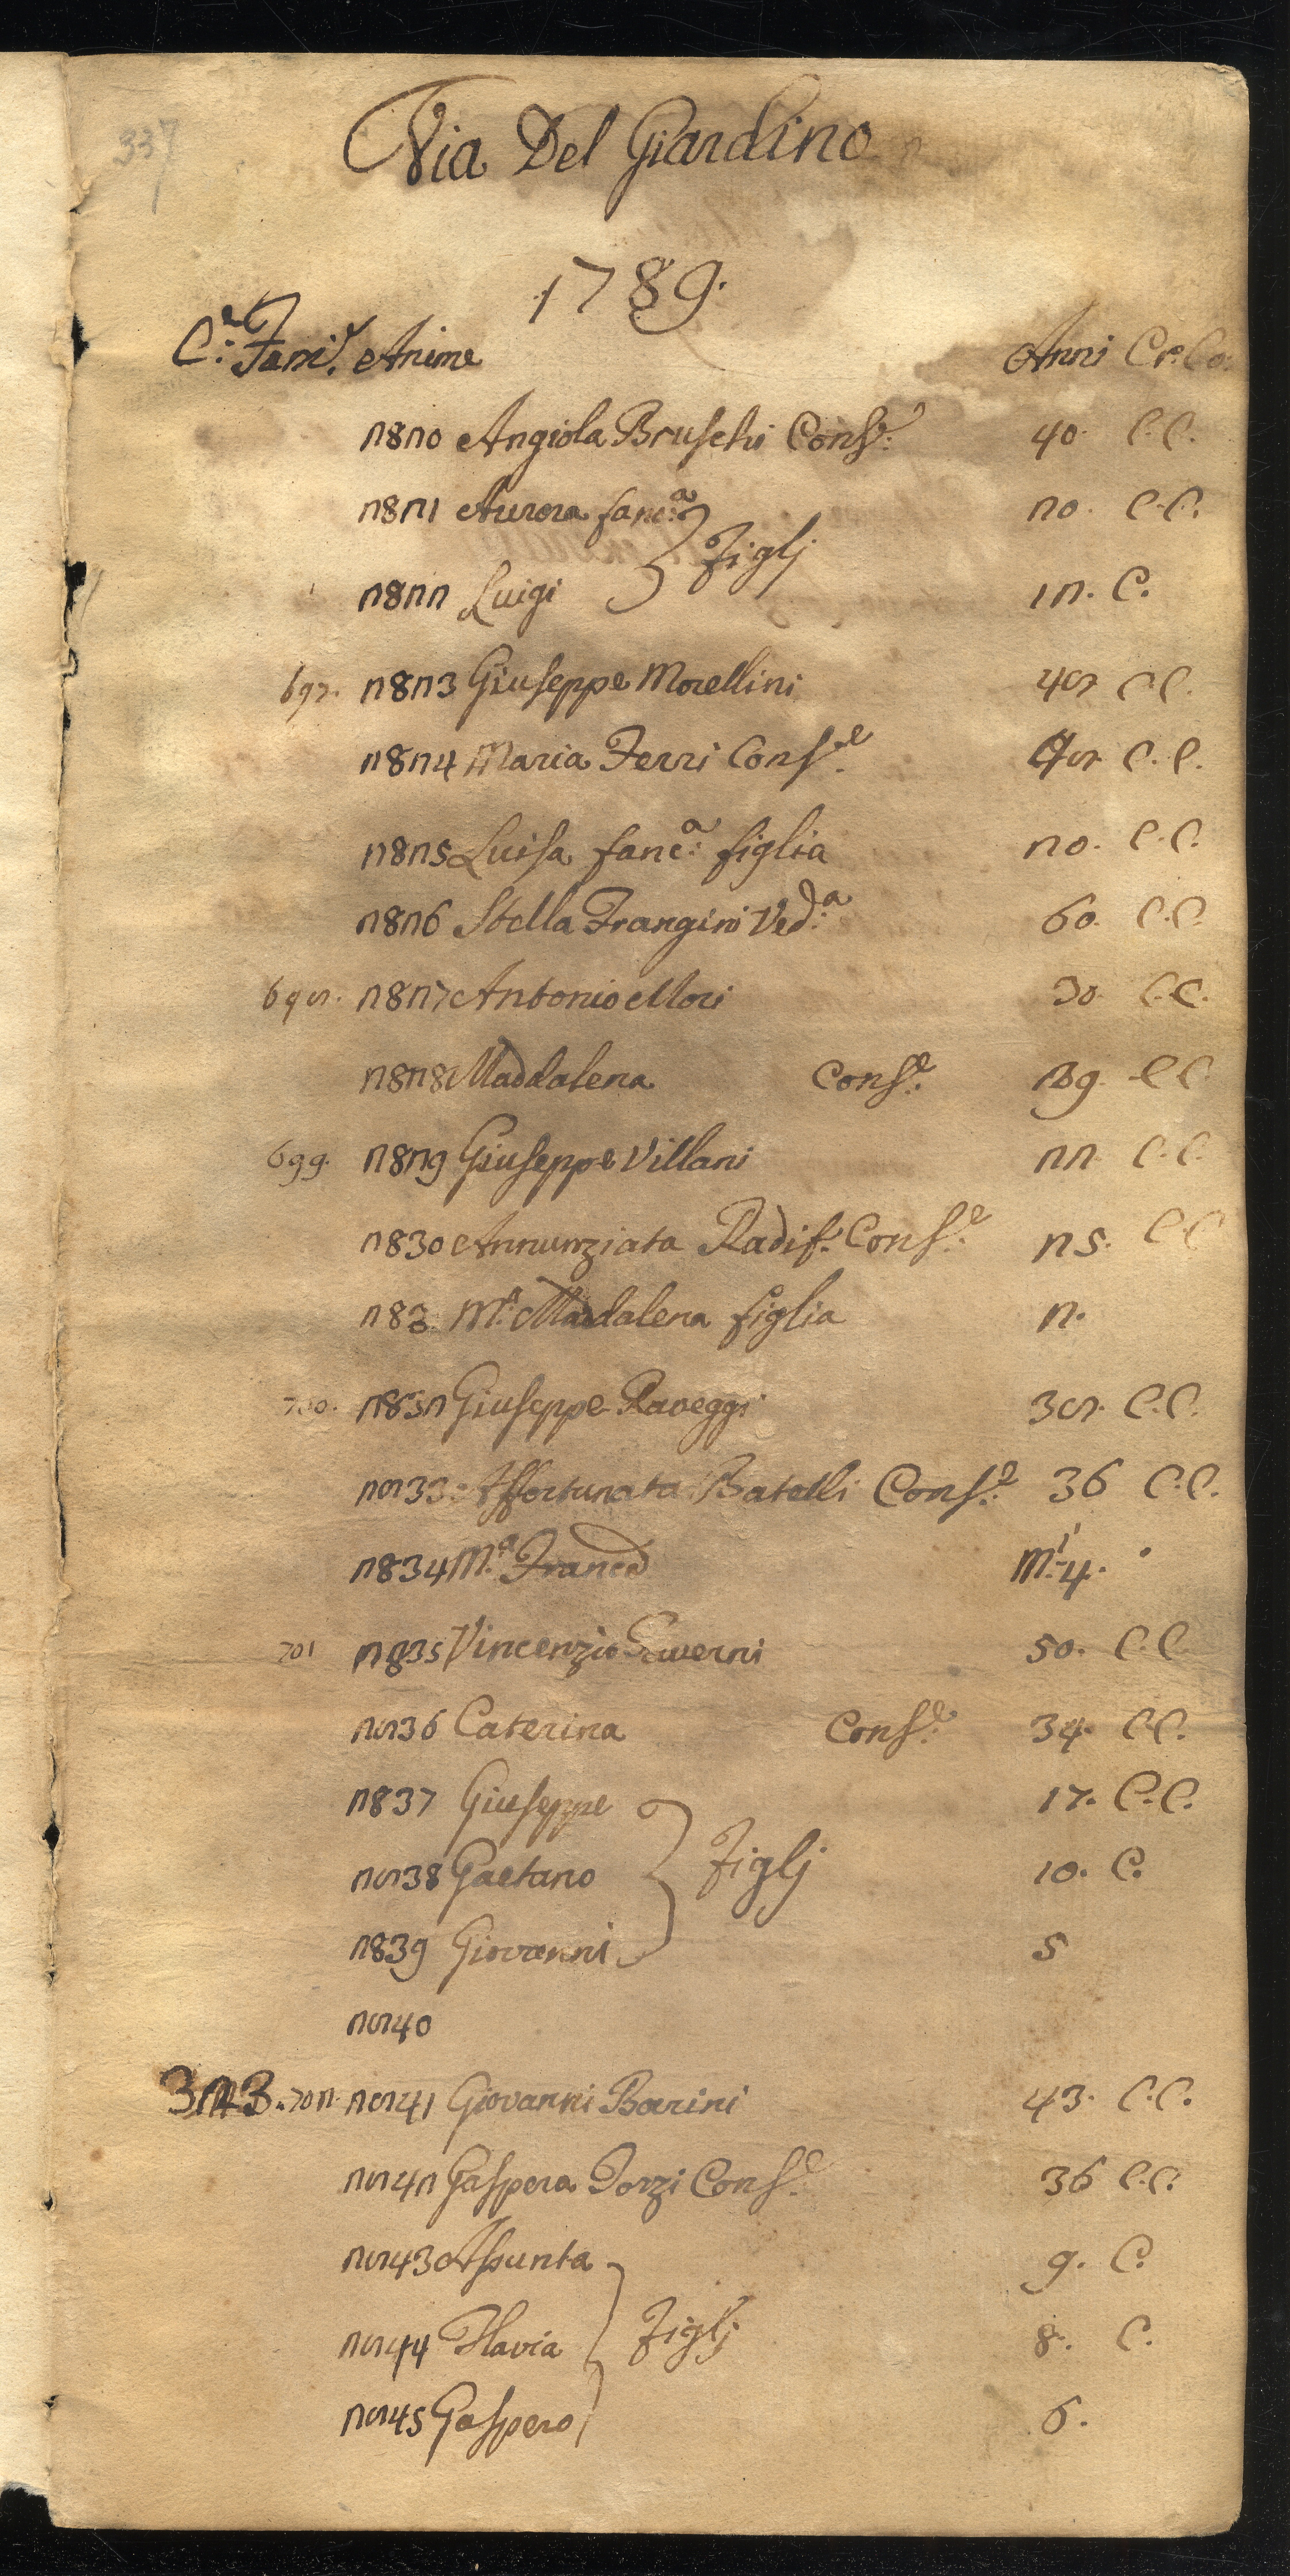 337
Via Del Giardino
1789.
C.e Fami.e Anime Anni Cr: Co:
2820 Angiola Bruschi Cons.e 40. C.C.
2821 Aurora fanc.a 20. C.C.
Figlj
2822 Luigi 12. C.
697. 2823 Giuseppe Morellini 48 C.C.
2824 Maria Ferri Cons.e 48 C.C.
2825 Luisa fanc.a figlia 20. C.C.
2826 Stella Frangini Ved.a 60. C.C.
698. 2827 Antonio Mori 30 C.C.
2828 Maddalena Cons.e 29. C.C.
699. 2829 Giuseppe Villani 22. C.C.
2830 Annunziata Radif. Cons.e 25. C.C.
283 M.a Maddalena figlia 2.
700. 2832 Giuseppe Raveggi 38. C.C.
2833 Affortunata Batelli Cons.e 36 C.C.
2834 M.a Franc.a M.i 4.
701 2835 Vincenzio 50. C.C.
2836 Caterina Cons.e 34. C.C.
2837 Giuseppe 17. C.C.
2838 Gaetano Figlj 10. C.
2839 Giovanni 5
2840
323. 702. 2841 Giovanni Barini 43. C.C.
2842 Gaspera Torzi Cons.e 36 C.C.
2843 Assunta 9. C.
2844 Flavia Figlj 8. C.
2845 Gaspero 6.